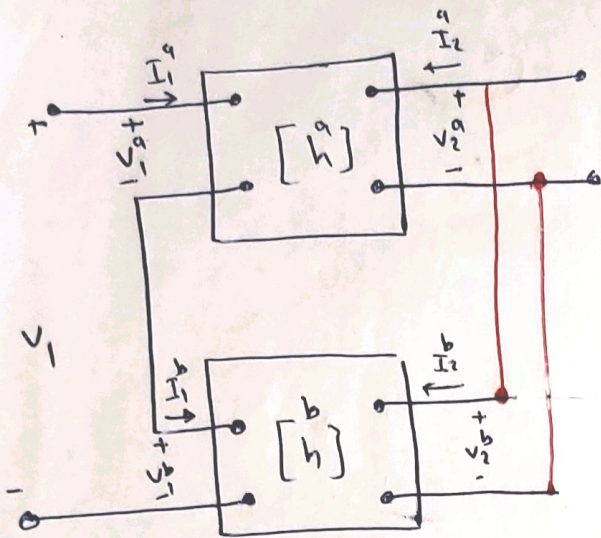 I₁ᵃ
I₂ᵃ
+
V₁ᵃ
+
-
[hᵃ]
+
V₂ᵃ
-
V₁
I₁ᵇ
I₂ᵇ
+
V₁ᵇ
-
[hᵇ]
+
V₂ᵇ
-
-